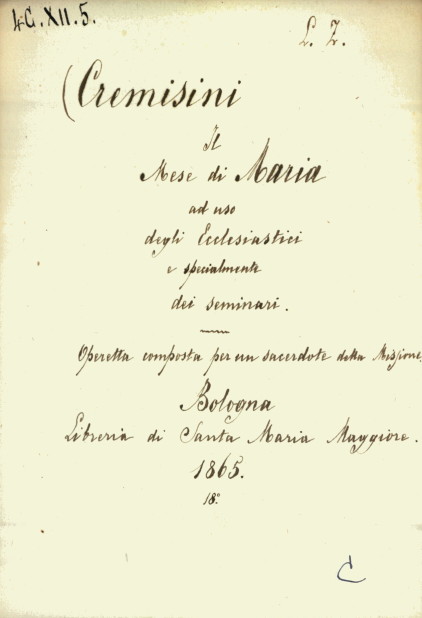 4C.XII.5.
L. Z.
(Cremisini
Il
Mese di Maria
ad uso
degli Ecclesiastici
e specialmente
dei seminari.
Operetta composta per un sacerdote della Missione.
Bologna
Libreria di Santa Maria Maggiore.
1865.
18º
C